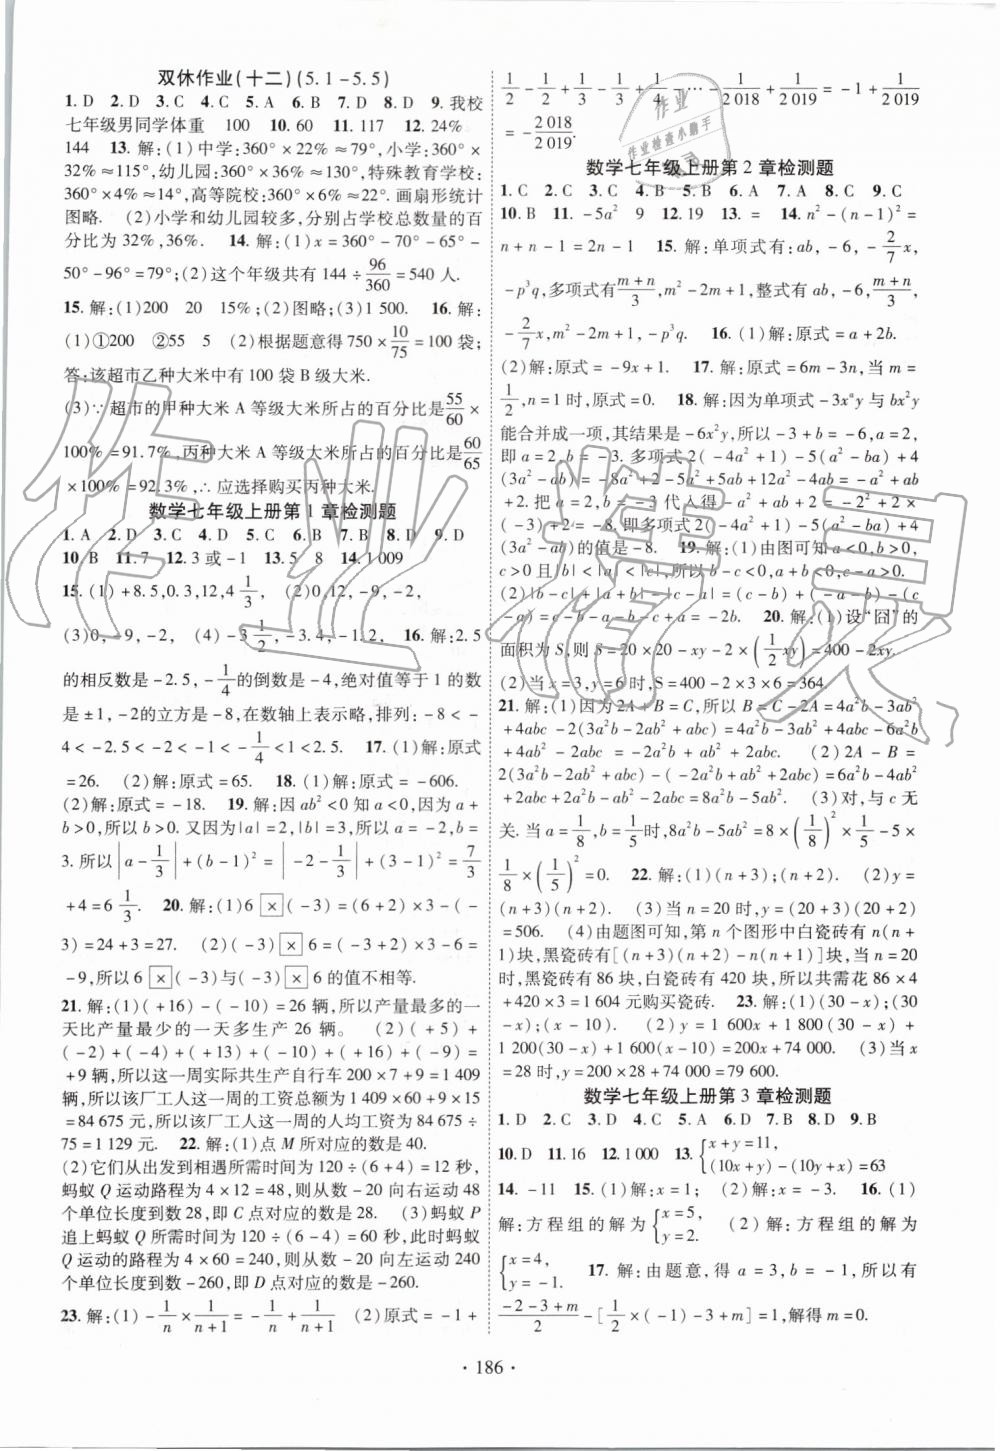 双休作业(十二)(5.1-5.5)
1. D 2. D 3. C 4. C 5. A 6. B 7. D 8. D 9. 我校
七年级男同学体重 100 10. 60 11. 117 12. 24%
144 13. 解:(1)中学:360°×22%≈79°,小学:360°×
32%≈115°,幼儿园:360°×36%≈130°,特殊教育学校:
360°×4%≈14°,高等院校:360°×6%≈22°. 画扇形统计
图略. (2)小学和幼儿园较多,分别占学校总数量的百
分比为 32%,36%. 14. 解:(1)x=360°-70°-65°-
50°-96°=79°;(2)这个年级共有 144÷96/360=540 人.
15. 解:(1)200 20 15%;(2)图略;(3)1 500. 16. 解:
(1)①200 ②55 5 (2)根据题意得 750×10/75=100 袋;
答:该超市乙种大米中有 100 袋 B 级大米.
(3)∵超市的甲种大米 A 等级大米所占的百分比是55/60×
100%=91.7%,丙种大米 A 等级大米所占的百分比是60/65
×100%=92.3%,∴应选择购买丙种大米.
数学七年级上册第 1 章检测题
1. A 2. D 3. C 4. D 5. C 6. B 7. B 8. C 9. D
10. B 11. 7 12. 3 或-1 13. 5 8 14. 1 009
15. (1)+8.5,0.3,12,4 1/3, (2)0,12,-9,-2,
(3)0,-9,-2, (4)-3 1/2,-3.4,-1.2, 16. 解:2.5
的相反数是-2.5,-1/4的倒数是-4,绝对值等于 1 的数
是±1,-2的立方是-8,在数轴上表示略,排列:-8<-
4<-2.5<-2<-1<-1/4<1<2.5. 17. (1)解:原式
=26. (2)解:原式=65. 18. (1)解:原式=-606.
(2)解:原式=-18. 19. 解:因 ab²<0 知 a<0,因为 a+
b>0,所以 b>0. 又因为|a|=2,|b|=3,所以 a=-2,b=
3. 所以|a-1/3|+(b-1)²=|-2-1/3|+(3-1)²=7/3
+4=6 1/3. 20. 解:(1)6 × (-3)=(6+2)×3-(-
3)=24+3=27. (2)(-3) × 6=(-3+2)×3-6=
-9,所以 6 × (-3)与(-3) × 6 的值不相等.
21. 解:(1)(+16)-(-10)=26 辆,所以产量最多的一
天比产量最少的一天多生产 26 辆。 (2)(+5)+
(-2)+(-4)+(+13)+(-10)+(+16)+(-9)=
+9 辆,所以这一周实际共生产自行车 200×7+9=1 409
辆,所以该厂工人这一周的工资总额为 1 409×60+9×15
=84 675 元,所以该厂工人这一周的人均工资为 84 675÷
75=1 129 元. 22. 解:(1)点 M 所对应的数是 40.
(2)它们从出发到相遇所需时间为 120÷(6+4)=12 秒,
蚂蚁 Q 运动路程为 4×12=48,则从数-20 向右运动 48
个单位长度到数 28,即 C 点对应的数是 28. (3)蚂蚁 P
追上蚂蚁 Q 所需时间为 120÷(6-4)=60 秒,此时蚂蚁
Q 运动的路程为 4×60=240,则从数-20 向左运动 240
个单位长度到数-260,即 D 点对应的数是-260.
23. 解:(1)-1/n×1/(n+1)=-1/n+1/(n+1) (2)原式=-1+
1/2-1/2+1/3-1/3+1/4-…-1/2 018+1/2 019=-1+1/2 019
=-2 018/2 019.
数学七年级上册第 2 章检测题
1. C 2. D 3. C 4. B 5. B 6. D 7. A 8. C 9. C
10. B 11. -5a² 9 12. 19 13. = 14. n²-(n-1)²=
n+n-1=2n-1 15. 解:单项式有:ab,-6,-2/7x,
-p³q,多项式有(m+n)/3,m²-2m+1,整式有 ab,-6,(m+n)/3,
-2/7x,m²-2m+1,-p³q. 16. (1)解:原式=a+2b.
(2)解:原式=-9x+1. 17. 解:原式=6m-3n,当 m=
1/2,n=1 时,原式=0. 18. 解:因为单项式-3xᵃy 与 bx²y
能合并成一项,其结果是-6x²y,所以-3+b=-6,a=2,
即 a=2,b=-3. 多项式 2(-4a²+1)-5(a²-ba)+4
(3a²-ab)=-8a²+2-5a²+5ab+12a²-4ab=-a²+ab
+2. 把 a=2,b=-3 代入得-a²+ab+2=-2²+2×
(-3)+2=-8. 即多项式 2(-4a²+1)-5(a²-ba)+4
(3a²-ab)的值是-8. 19. 解:(1)由图可知 a<0,b>0,
c>0 且|b|<|a|<|c|,所以 b-c<0,a-b<0,a+c>0.
(2)|b-c|+|a+b|-|c-a|=(c-b)+(-a-b)-(c
-a)=c-b-a-b-c+a=-2b. 20. 解:(1)设“囧”的
面积为 S,则 S=20×20-xy-2×(1/2xy)=400-2xy.
(2)当 x=3,y=6 时,S=400-2×3×6=364.
21. 解:(1)因为 2A+B=C,所以 B=C-2A=4a²b-3ab²
+4abc-2(3a²b-2ab²+abc)=4a²b-3ab²+4abc-6a²b
+4ab²-2abc=-2a²b+ab²+2abc. (2)2A-B=
2(3a²b-2ab²+abc)-(-2a²b+ab²+2abc)=6a²b-4ab²
+2abc+2a²b-ab²-2abc=8a²b-5ab². (3)对,与 c 无
关. 当 a=1/8,b=1/5时,8a²b-5ab²=8×(1/8)²×1/5-5×
1/8×(1/5)²=0. 22. 解:(1)(n+3);(n+2). (2)y=
(n+3)(n+2). (3)当 n=20 时,y=(20+3)(20+2)
=506. (4)由题图可知,第 n 个图形中白瓷砖有 n(n+
1)块,黑瓷砖有[(n+3)(n+2)-n(n+1)]块,当 n=20
时,黑瓷砖有 86 块,白瓷砖有 420 块,所以共需花 86×4
+420×3=1 604 元购买瓷砖. 23. 解:(1)(30-x);(30
-x);(x-10). (2)y=1 600x+1 800(30-x)+
1 200(30-x)+1 600(x-10)=200x+74 000. (3)当 x
=28 时,y=200×28+74 000=79 600.
数学七年级上册第 3 章检测题
1. D 2. C 3. D 4. C 5. A 6. D 7. B 8. D 9. B
10. D 11. 16 12. 1 000 13. {x+y=11, (10x+y)-(10y+x)=63
14. -11 15. (1)解:x=1; (2)解:x=-3. 16. (1)
解:方程组的解为{x=5, y=2. (2)解:方程组的解为
{x=4, y=-1. 17. 解:由题意,得 a=3,b=-1,所以有
(-2-3+m)/2-[1/2×(-1)-3+m]=1,解得 m=0.
·186·
作业精灵
作业
作业检查小助手